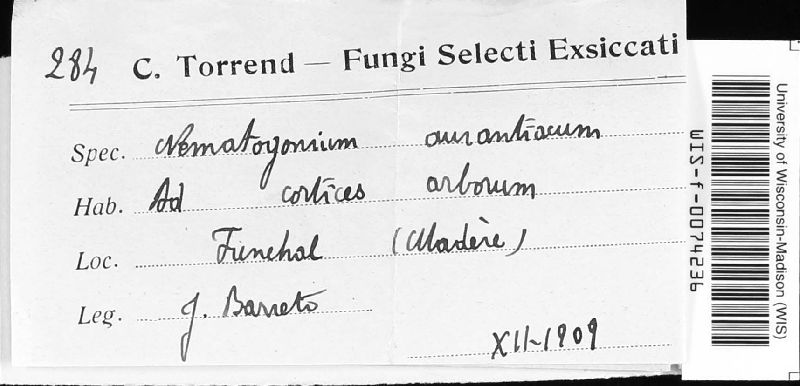 284 C. Torrend — Fungi Selecti Exsiccati
Spec. Nematogonium aurantiacum
Hab. Ad cortices arborum
Loc. Funchal (Madère)
Leg. J. Barreto
XII-1909
University of Wisconsin-Madison (WIS)
WIS-f-0074236